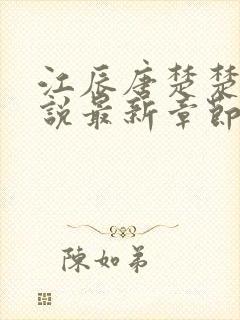 江辰唐楚楚
說最新章節
陳如弟